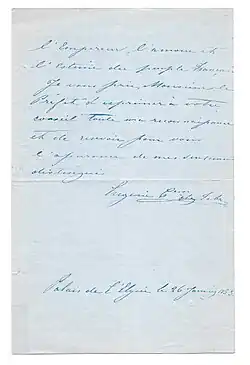 l'Empereur, l'amour et
l'estime du peuple français.
Je vous prie, Monsieur le
Préfet d'exprimer à votre
conseil toute ma reconnaissance
et de recevoir pour vous
l'assurance de mes sentiments
distingués
Eugénie Ctesse de Teba
Palais de l'Elysée le 26 Janvier 1853